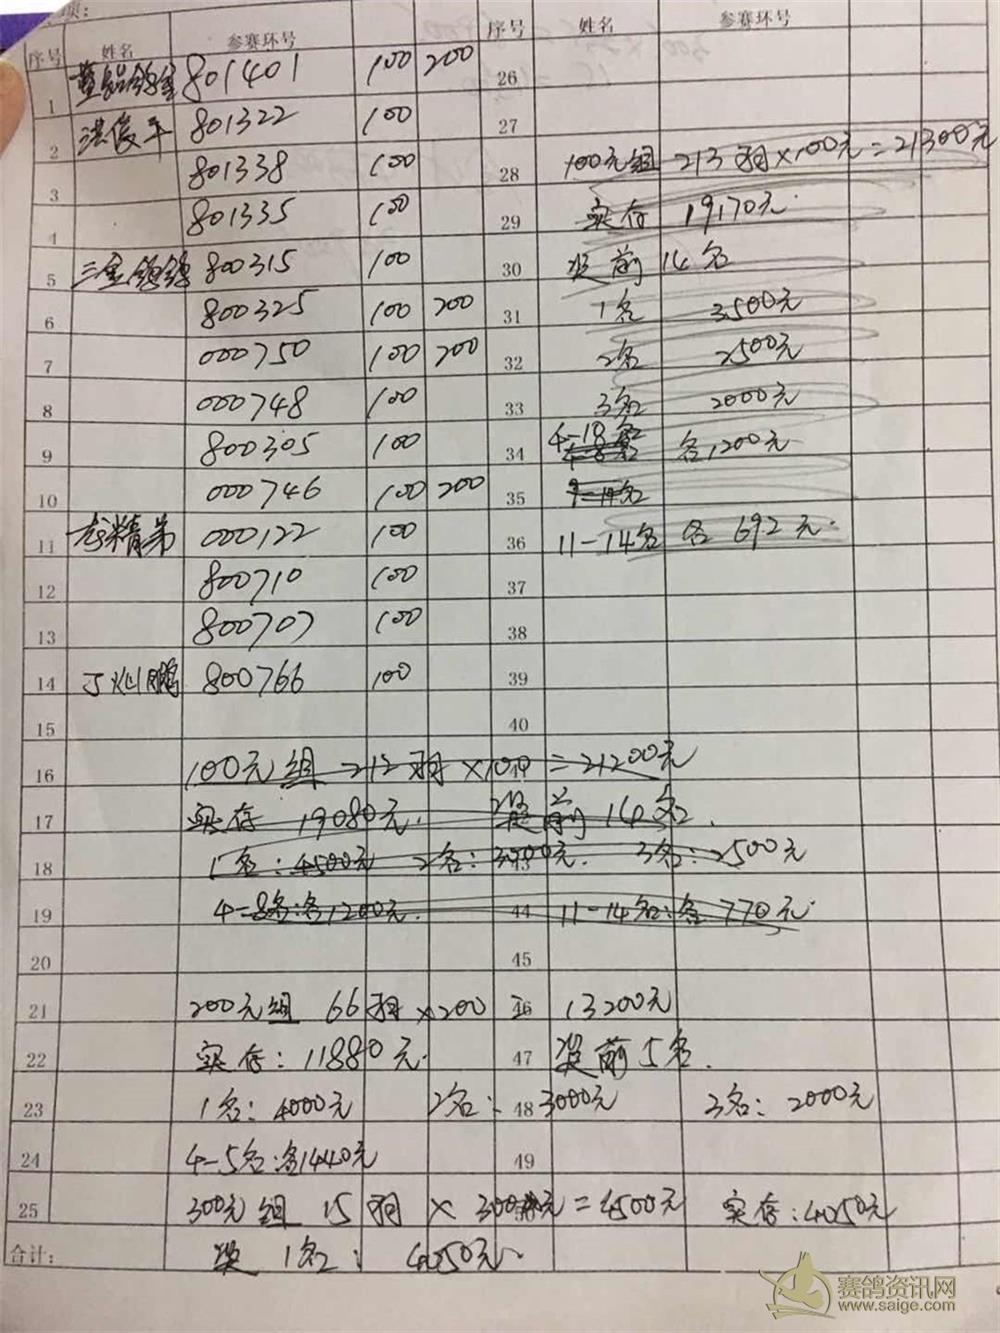 项:
序号 姓名 参赛环号 序号 姓名 参赛环号
1 801401 100 200 26
2 洪俊平 801322 100 27
3 801338 100 28 100元组 213羽×100元=21300元
4 801335 100 29 实存 19170元
5 800315 100 30 奖前14名
6 800325 100 200 31 1名 3500元
7 000750 100 200 32 2名 2500元
8 000748 100 33 3名 2000元
9 800305 100 34 各1200元
10 000746 100 200 35
11 李精弟 000122 100 36 11-14名 各 692元
12 800710 100 37
13 800707 100 38
14 丁灿鹏 800766 100 39
15 40
16 100元组 212羽×100=21200元
17 实存 19080元. 奖前14名.
18 1名:4500元 2名:3000元. 3名:2500元
19 4-8名:各1200元. 44 11-14名:各770元
20 45
21 200元组 66羽×200 = 46 13200元
22 实存:11880元. 47 奖前5名.
23 1名:4000元 2名: 48 3000元 3名:2000元
24 4-5名:各1440元 49
25 300元组 15羽×300元=4500元 实存:4050元
合计: 奖1名: 4050元.
赛鸽资讯网
www.saige.com